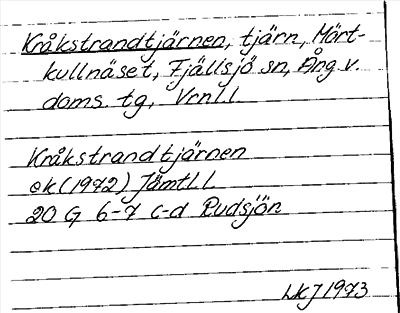 Kråkstrandtjärnen, tjärn, Mört-
kullnäset, Fjällsjö sn, Ång. v.
doms. tg, Vrnl l
Kråkstrandtjärnen
ek (1972) Jämtl. l
20 G 6-7 c-d Rudsjön
LKJ 1973